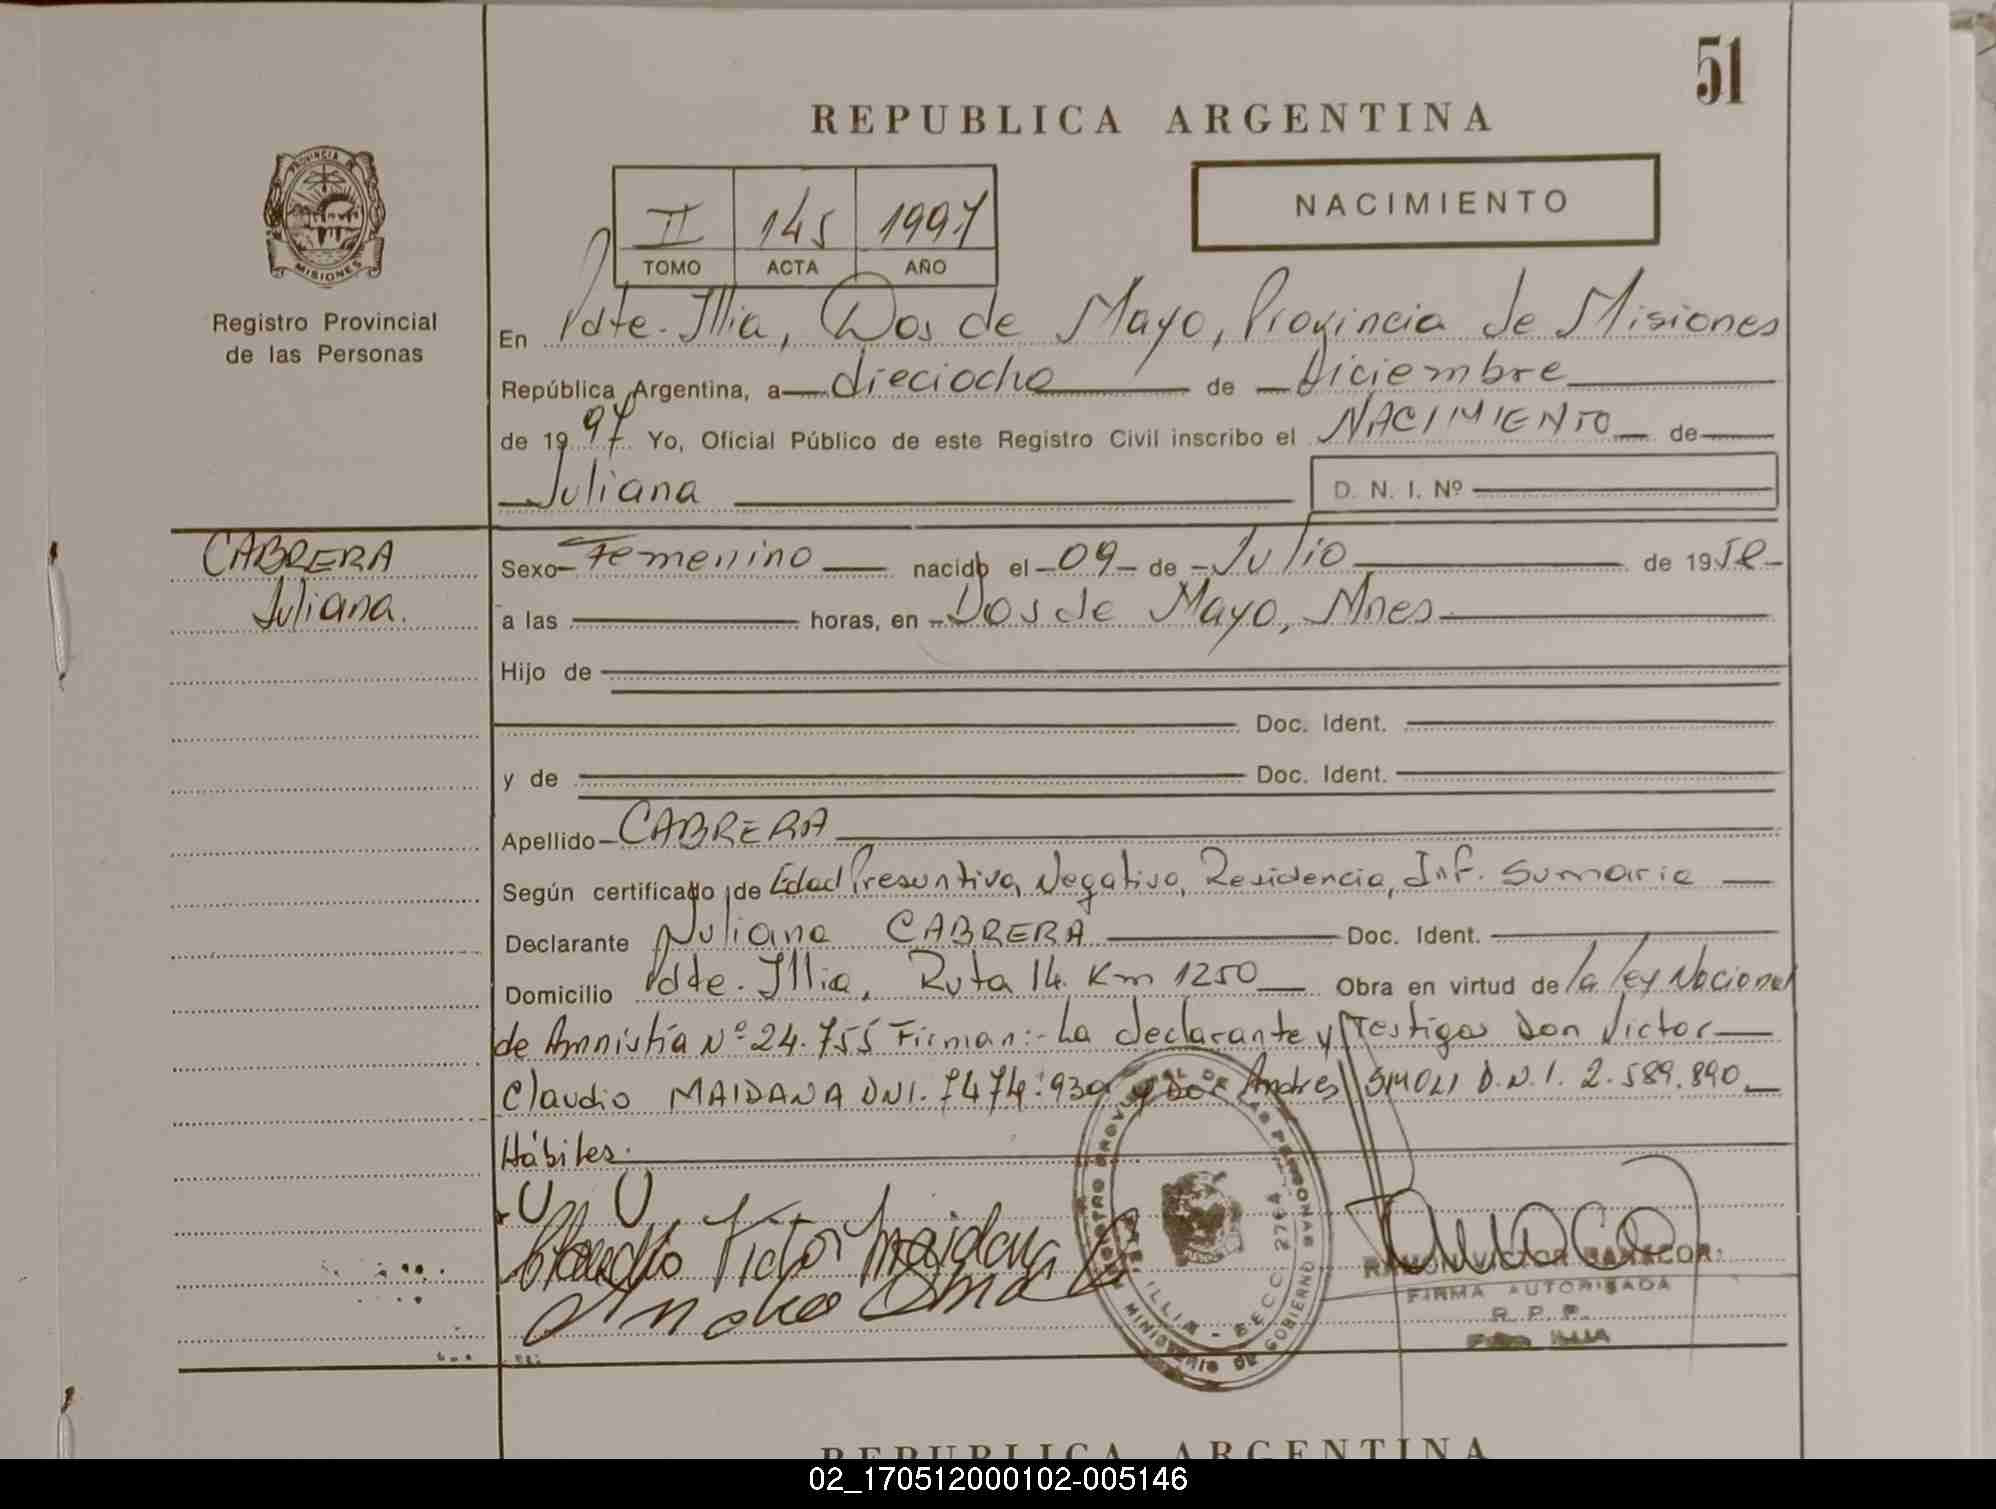 51
REPUBLICA ARGENTINA
PROVINCIA DE
MISIONES
Registro Provincial
de las Personas
II 145 1997
TOMO ACTA AÑO
NACIMIENTO
En Pdte. Illia, Dos de Mayo, Provincia de Misiones
República Argentina, a dieciocho de Diciembre
de 1997 Yo, Oficial Público de este Registro Civil inscribo el NACIMIENTO de
Juliana D. N. I. Nº
CABRERA
Juliana.
Sexo Femenino nacido el 09 de Julio de 19
a las horas, en Dos de Mayo, Mnes
Hijo de
Doc. Ident.
y de Doc. Ident.
Apellido CABRERA
Según certificado de Edad Presuntiva, Negativo, Residencia, Inf. Sumaria
Declarante Juliana CABRERA Doc. Ident.
Domicilio Pdte. Illia, Ruta 14 Km 1250 Obra en virtud de la ley Nacional
de Amnistía Nº 24.755 Firman:- La declarante y Testigos Don Victor
Claudio MAIDANA DNI. 7474.939 y Don Andres SMOLI D.N.I. 2.589.890
Hábiles.
Claudio Victor Maidana
REGISTRO PROVINCIAL DE LAS PERSONAS
MINISTERIO DE GOBIERNO
ILLIA - SECC. 2764
RAMON VICTOR
FIRMA AUTORISADA
R. P. P.
ILLIA
REPUBLICA ARGENTINA
02_170512000102-005146